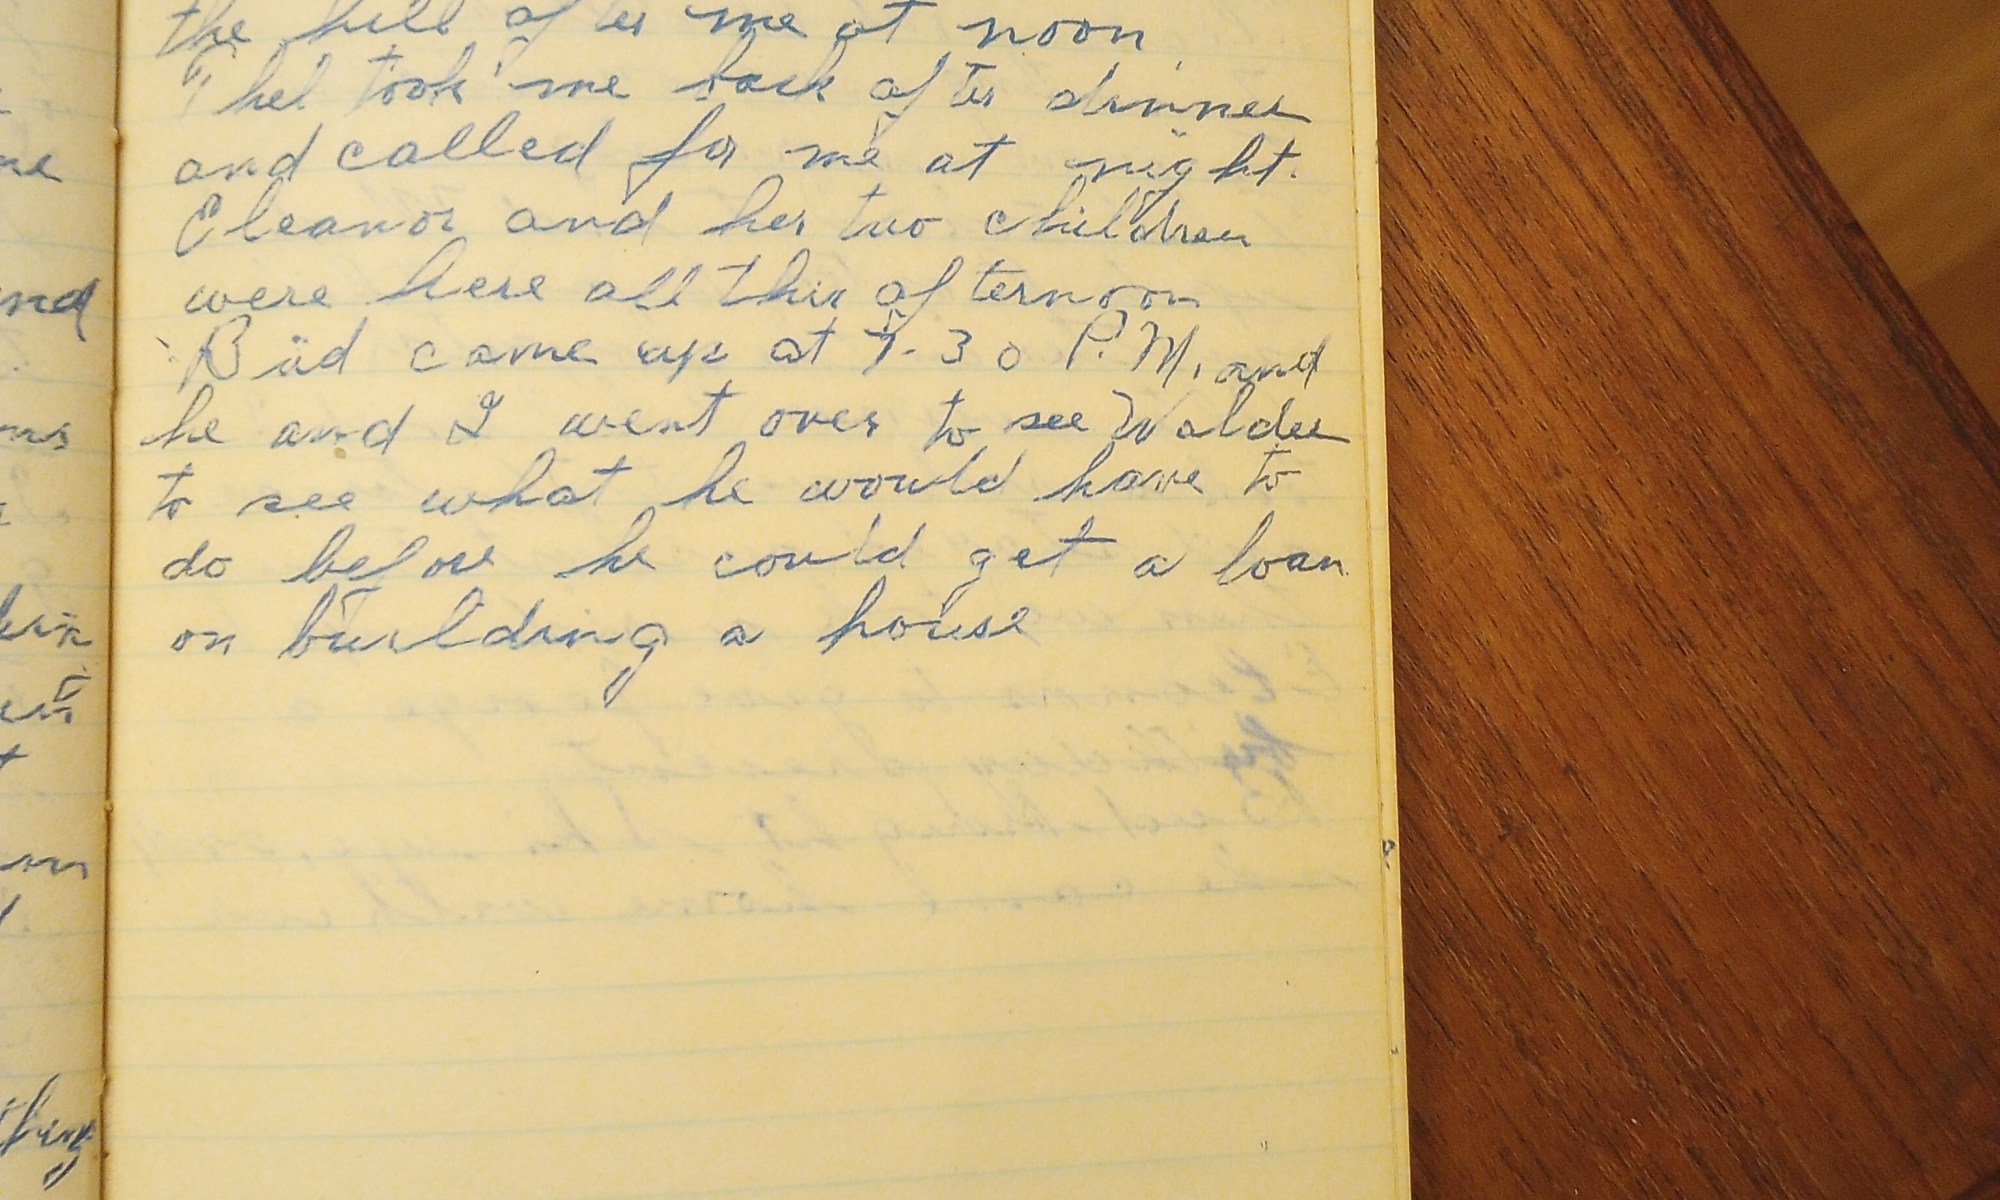 the hill after me at noon
Thel took me back after dinner
and called for me at night.
Eleanor and her two children
were here all this afternoon
Bud came up at 7.30 P.M. and
he and I went over to see
to see what he would have to
do before he could get a loan
on building a house
nd
thing